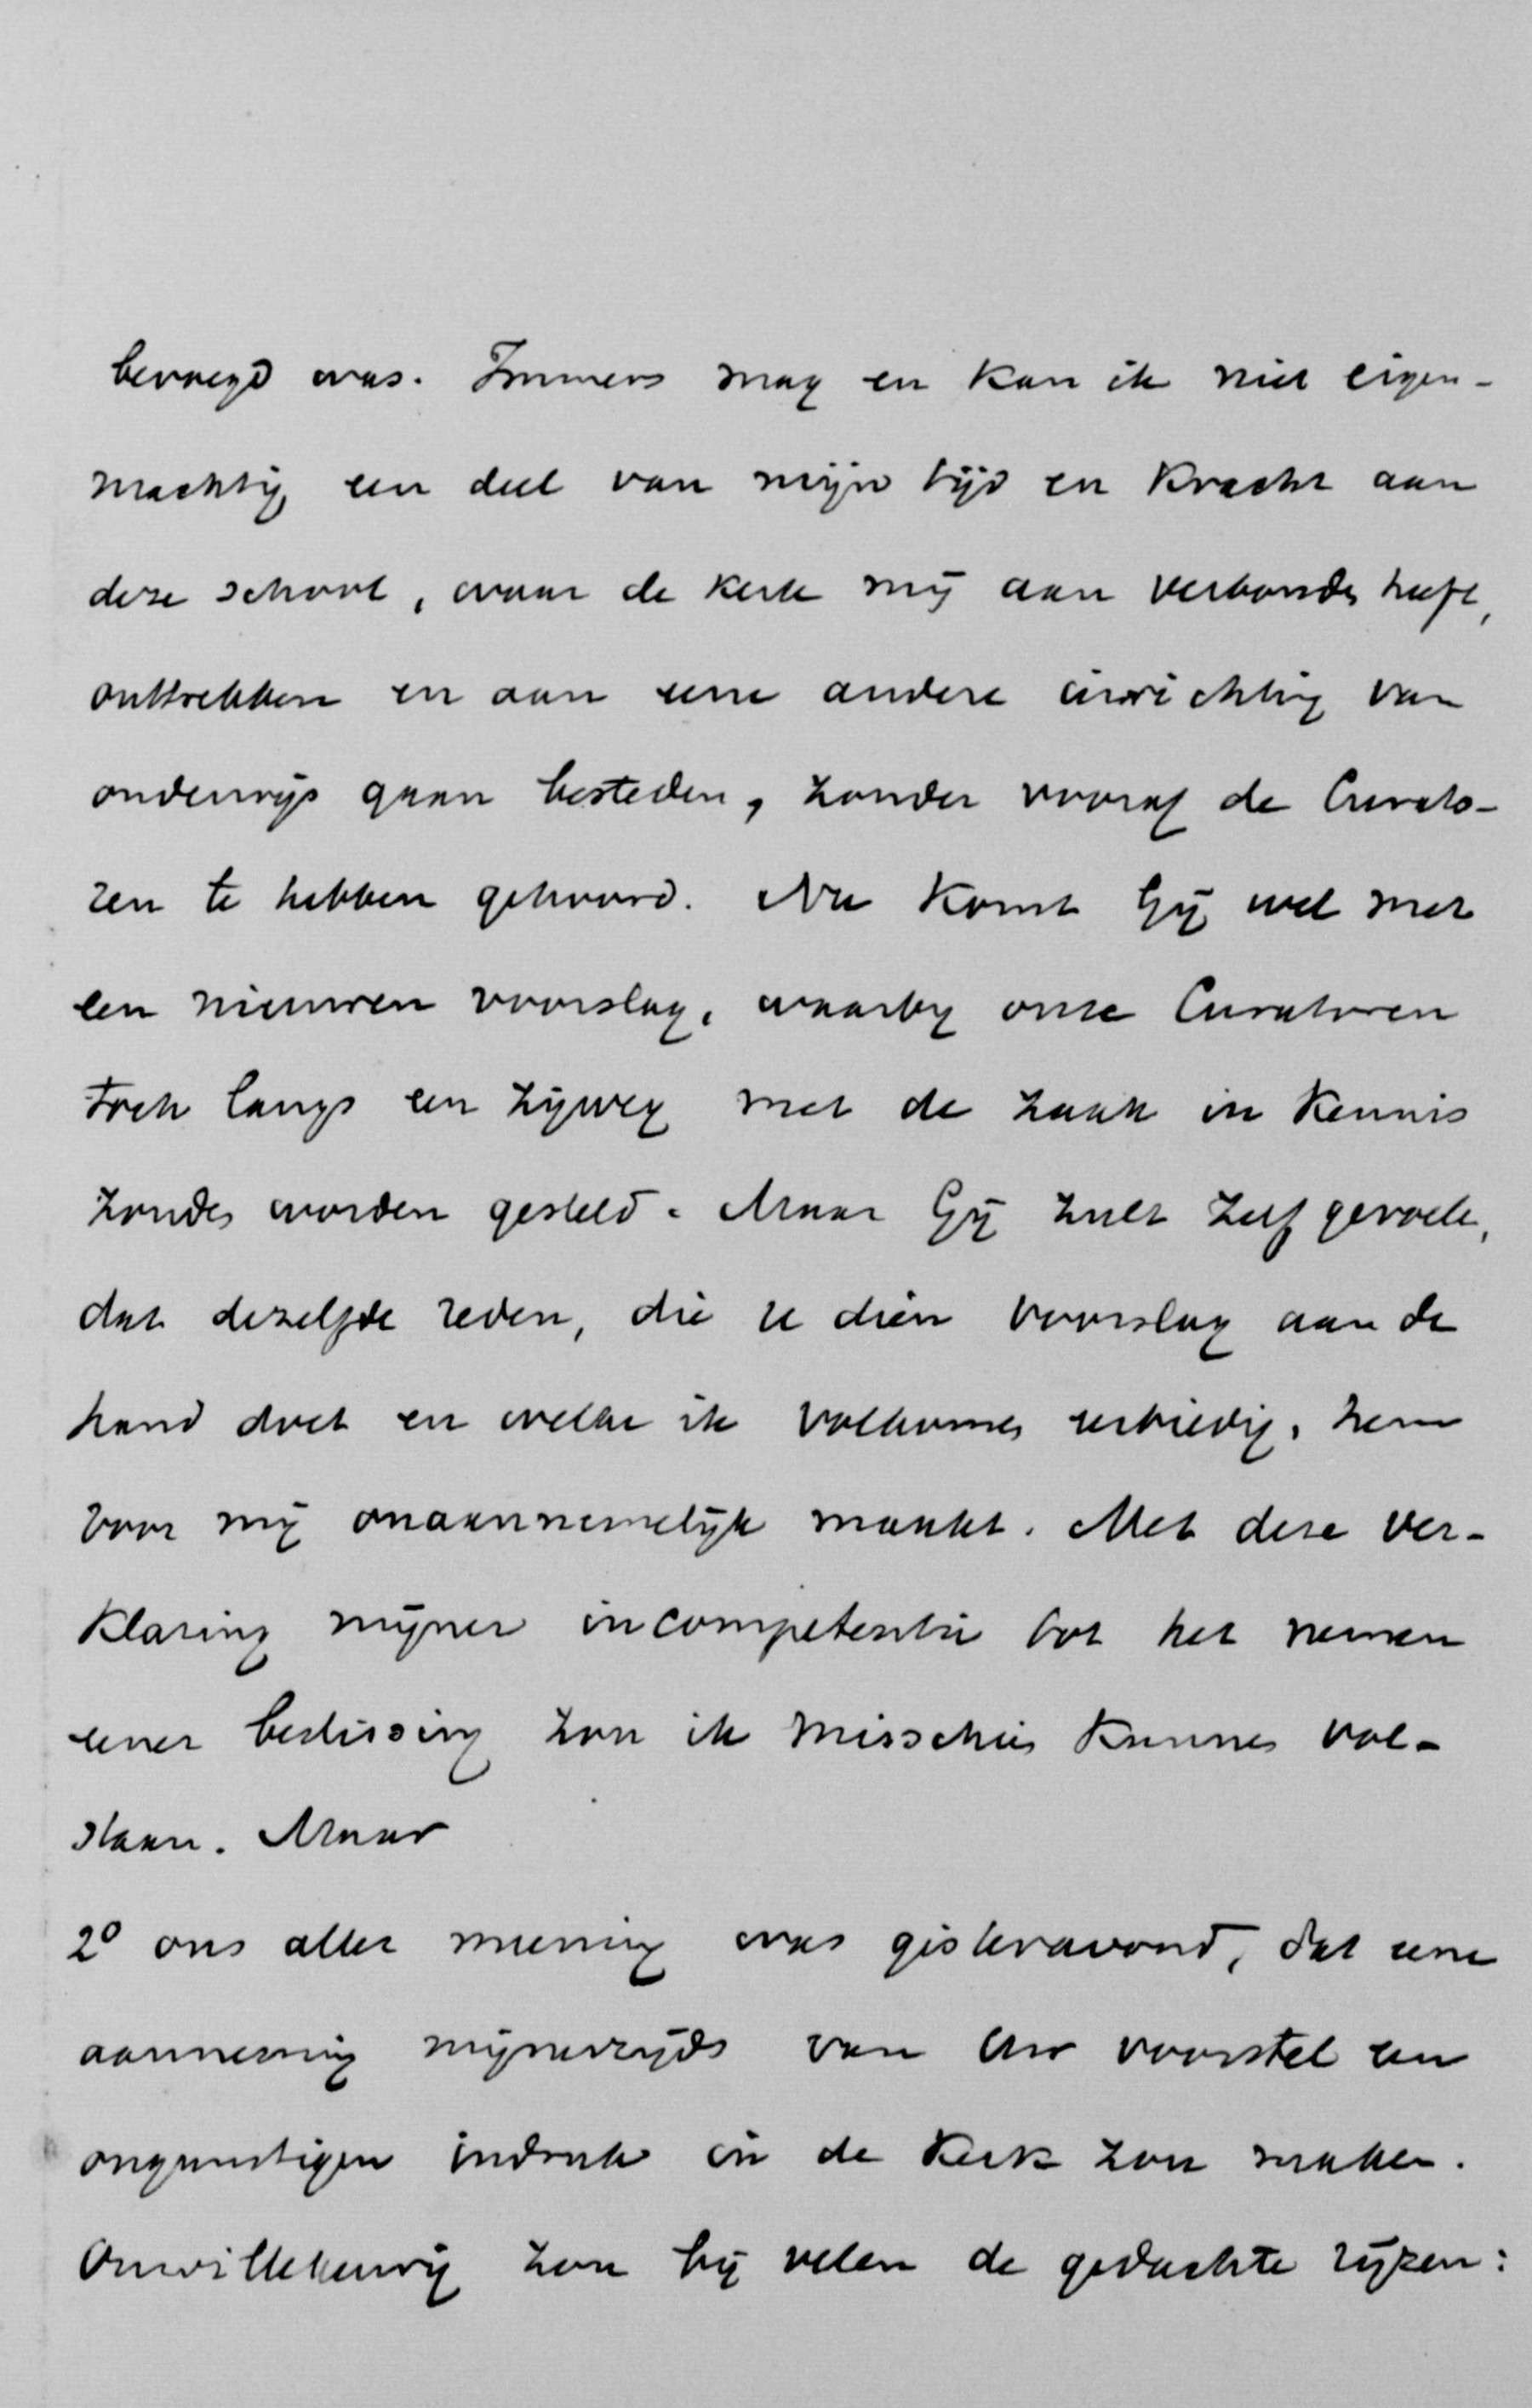 bevoegd was. Immers mag en kan ik niet eigen-
machtig een deel van mijn tijd en kracht aan
deze school, waar de kerk mij aan verbonden heeft,
onttrekken en aan eene andere inrichting van
onderwijs gaan besteden, zonder vooraf de Curato-
ren te hebben gehoord. Nu komt Gij wel met
een nieuwen voorslag, waarbij onze Curatoren
toch langs een zijweg met de zaak in kennis
zouden worden gesteld. Maar Gij zult zelf gevoelen,
dat dezelfde reden, die u dien voorslag aan de
hand doet en welke ik volkomen eerbiedig, hem
voor mij onaannemelijk maakt. Met deze ver-
klaring mijner incompetentie tot het nemen
eener beslissing zou ik misschien kunnen vol-
staan. Maar
2º ons aller meening was gisteravond, dat eene
aanneming mijnerzijds van Uw voorstel een
ongunstigen indruk in de kerk zou maken.
Onwillekeurig zou bij velen de gedachte rijzen: